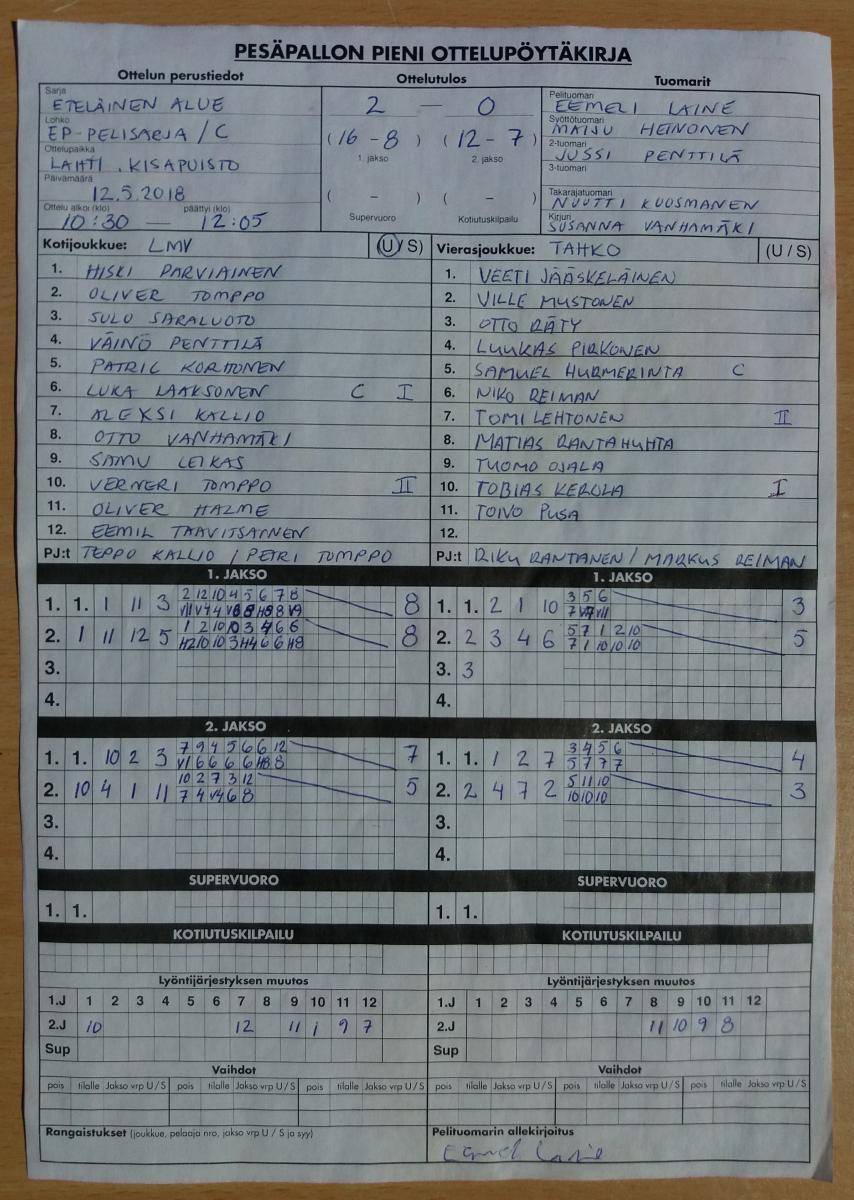 PESÄPALLON PIENI OTTELUPÖYTÄKIRJA
Ottelun perustiedot
Sarja
ETELÄINEN ALUE
Lohko
EP-PELISARJA / C
Ottelupaikka
LAHTI, KISAPUISTO
Päivämäärä
12.5.2018
Ottelu alkoi (klo) päättyi (klo)
10:30 — 12:05
Ottelutulos
2 — 0
(16 - 8) (12 - 7)
1. jakso 2. jakso
( - ) ( - )
Supervuoro Kotiutuskilpailu
Tuomarit
Pelituomari
EEMELI LAINE
Syöttötuomari
MAIJU HEINONEN
2-tuomari
JUSSI PENTTILÄ
3-tuomari
Takarajatuomari
NUUTTI KUOSMANEN
Kirjuri
SUSANNA VANHAMÄKI
Kotijoukkue: LMV (U / S)
1. HISKI PARVIAINEN
2. OLIVER TOMPPO
3. SULO SARALUOTO
4. VÄINÖ PENTTILÄ
5. PATRIC KORHONEN
6. LUKA LAAKSONEN C I
7. ALEKSI KALLIO
8. OTTO VANHAMÄKI
9. SAMU LEIKAS
10. VERNERI TOMPPO II
11. OLIVER HALME
12. EEMIL TAAVITSAINEN
PJ:t TEPPO KALLIO / PETRI TOMPPO
Vierasjoukkue: TAHKO (U / S)
1. VEETI JÄÄSKELÄINEN
2. VILLE MUSTONEN
3. OTTO RÄTY
4. LUUKAS PIRKONEN
5. SAMUEL HURMERINTA C
6. NIKO REIMAN
7. TOMI LEHTONEN II
8. MATIAS RANTAHUHTA
9. TUOMO OJALA
10. TOBIAS KEROLA I
11. TOIVO PUSA
12.
PJ:t RIKU RANTANEN / MARKUS REIMAN
1. JAKSO
1. 1. 1 11 3 2 12 10 4 5 6 7 8 8
2. 1 11 12 5 8
3.
4.
1. JAKSO
1. 1. 2 1 10 3 5 6 3
2. 2 3 4 6 5 7 1 2 10 5
7 1 10 10 10
3. 3
4.
2. JAKSO
1. 1. 10 2 3 7 9 4 5 6 6 12 7
2. 10 4 1 11 10 2 7 3 12 5
7 4 V4 6 8
3.
4.
2. JAKSO
1. 1. 1 2 7 3 4 5 6 4
5 7 7 7
2. 2 4 7 2 5 11 10 3
10 10 10
3.
4.
SUPERVUORO
1. 1.
SUPERVUORO
1. 1.
KOTIUTUSKILPAILU
KOTIUTUSKILPAILU
Lyöntijärjestyksen muutos
1.J 1 2 3 4 5 6 7 8 9 10 11 12
2.J 10 12 11 1 9 7
Sup
Lyöntijärjestyksen muutos
1.J 1 2 3 4 5 6 7 8 9 10 11 12
2.J 11 10 9 8
Sup
Vaihdot
pois tilalle Jakso vrp U / S pois tilalle Jakso vrp U / S pois tilalle Jakso vrp U / S
Vaihdot
pois tilalle Jakso vrp U / S pois tilalle Jakso vrp U / S pois tilalle Jakso vrp U / S
Rangaistukset (joukkue, pelaaja nro, jakso vrp U / S ja syy)
Pelituomarin allekirjoitus
Eemeli Laine